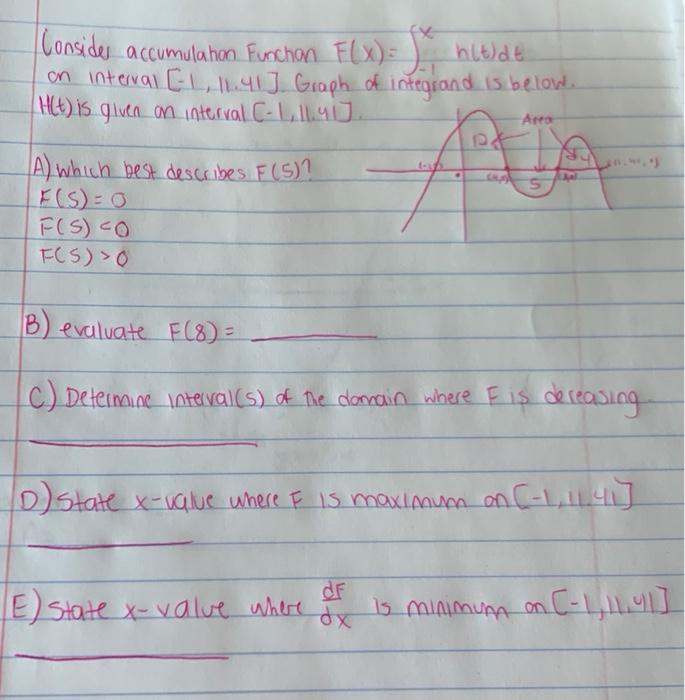 Consider accumulation Function F(x) = ∫_{-1}^{x} h(t)dt
on interval [-1, 11.41]. Graph of integrand is below.
H(t) is given on interval [-1, 11.41].
Area
12
5
A) which best describes F(5)?
F(5) = 0
F(5) < 0
F(5) > 0
B) evaluate F(8) =
C) Determine interval(s) of the domain where F is decreasing.
D) State x-value where F is maximum on [-1, 11.41]
E) State x-value where dF/dx is minimum on [-1, 11.41]